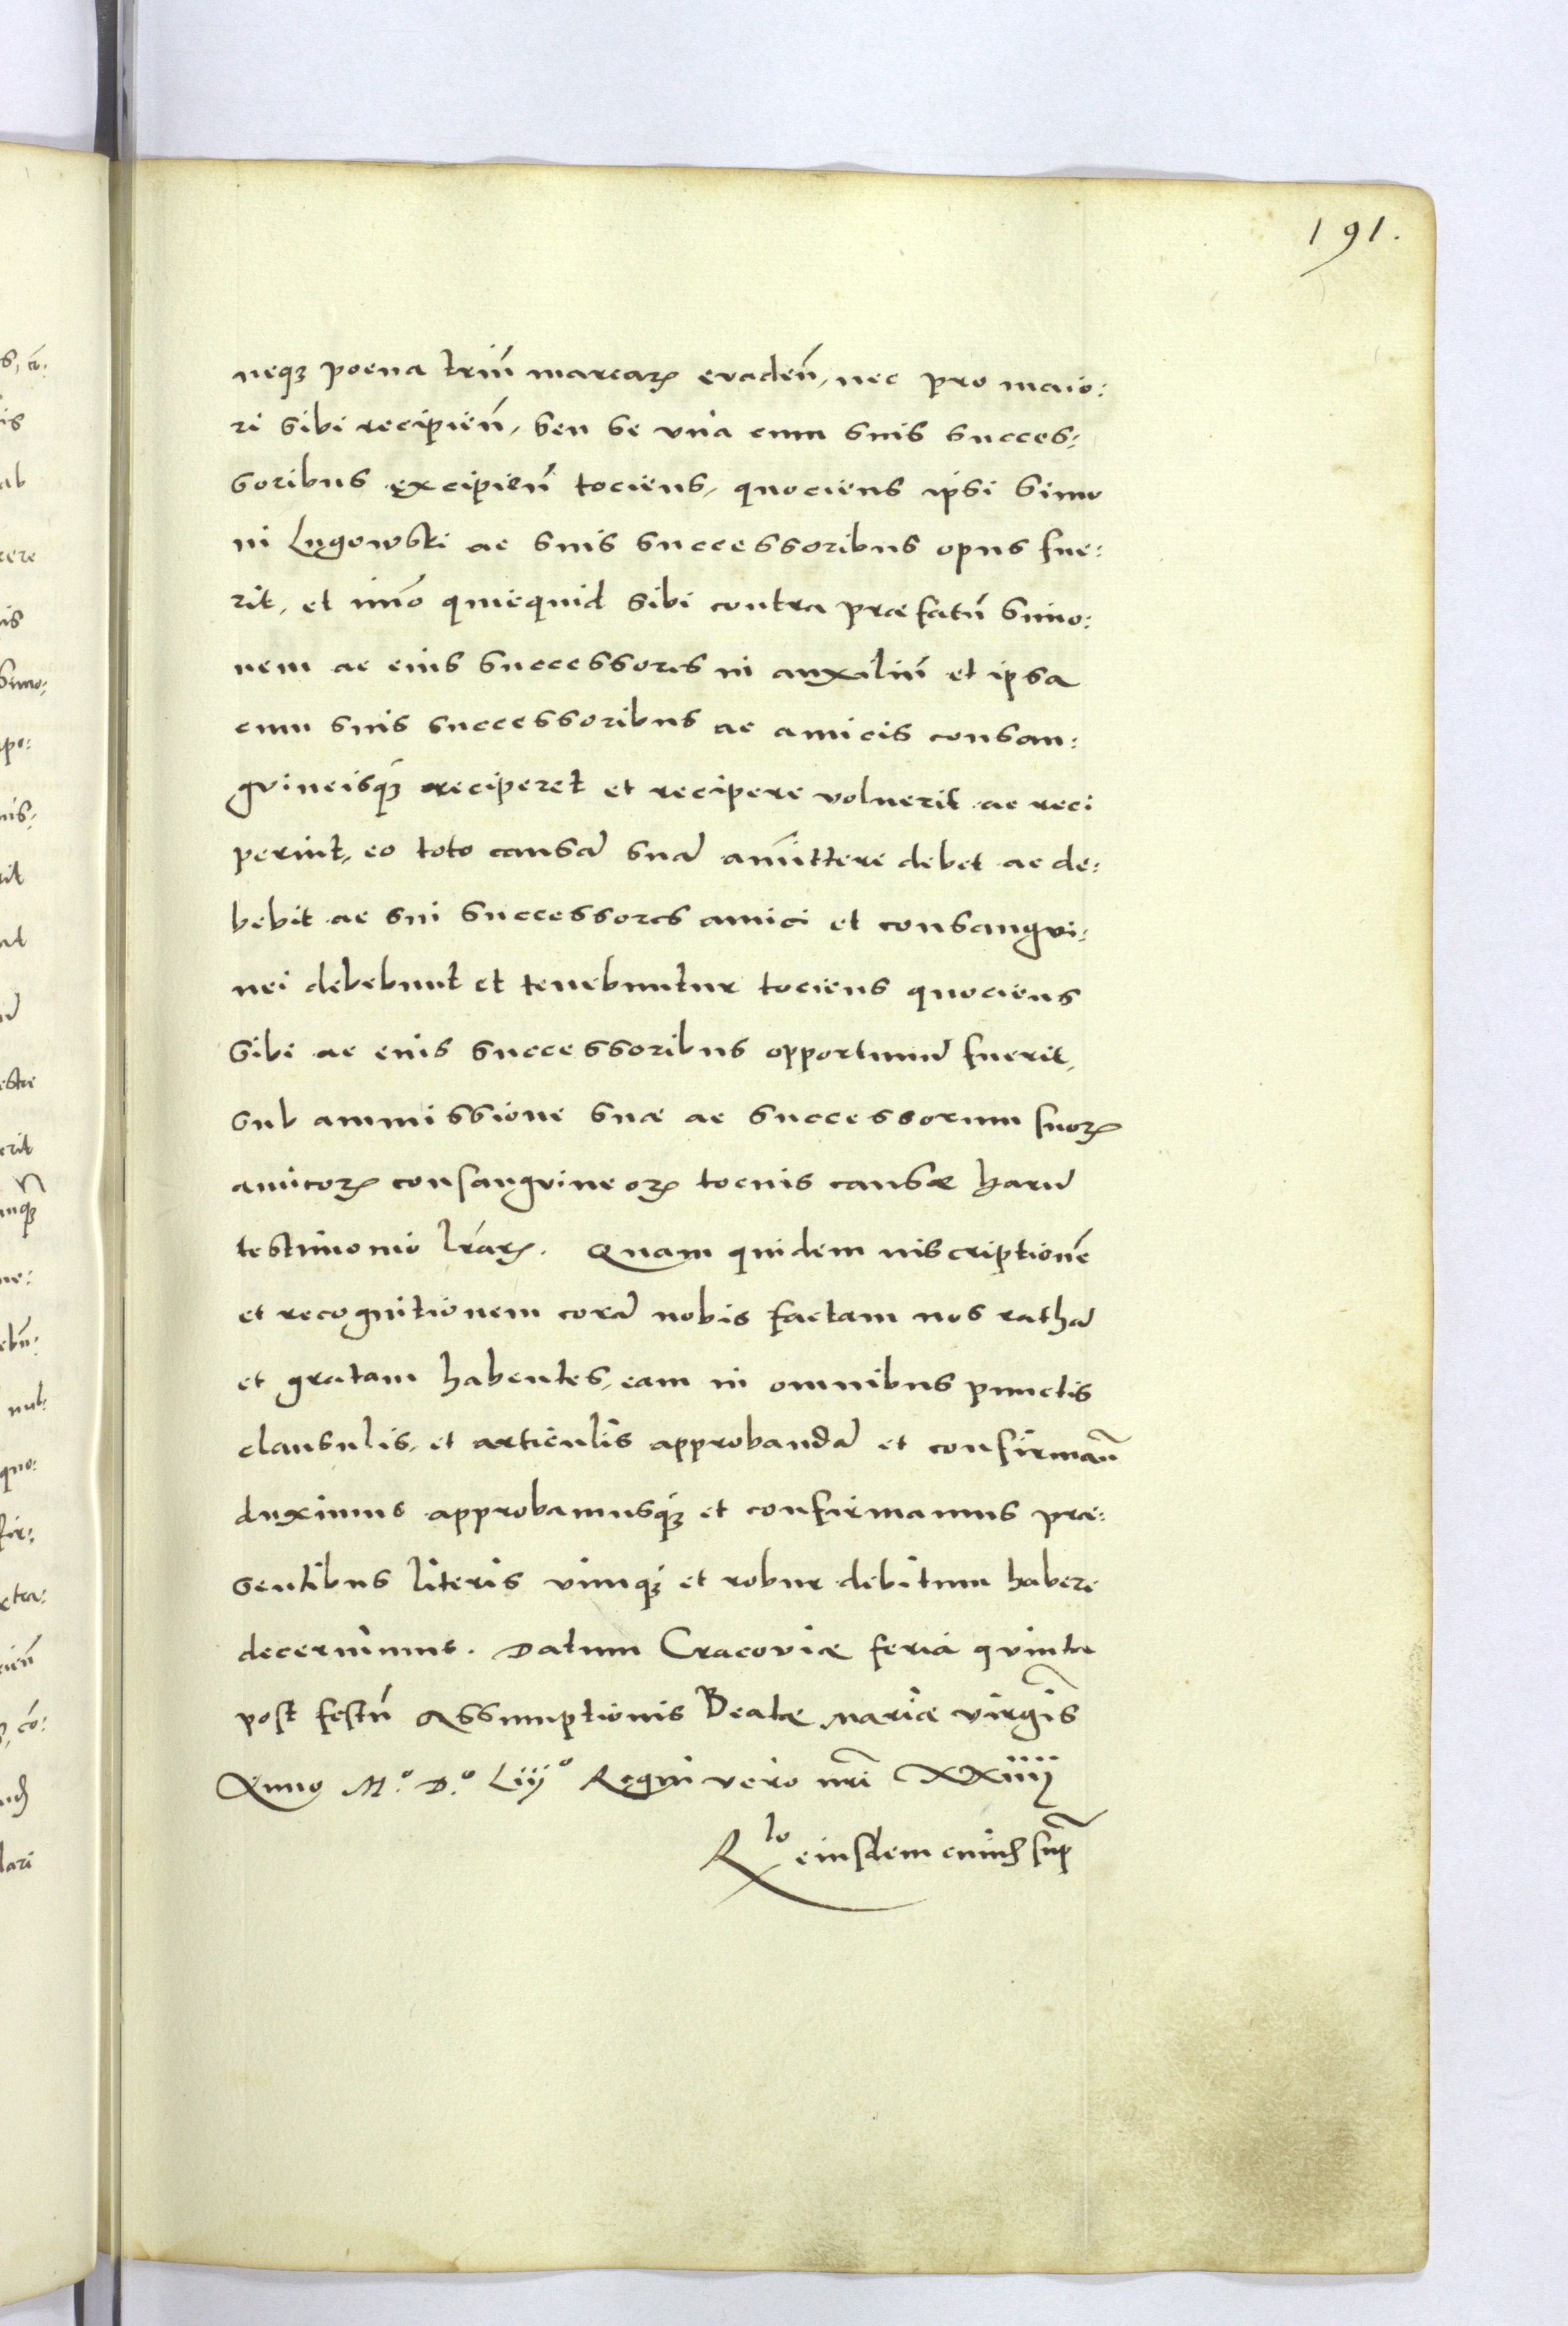 191.
neqꝫ poena triũ marcaꝝ evadeñ, nec pro maio:
ri sibi recipieñ, seu se vna cum suis succes:
soribus excipieñ tociens, quociens ipsi Simo
ni Lugowski ac suis successoribus opus fue:
rit, et im̃o quicquid sibi contra præfatũ Simo:
nem ac eius successores in auxiliũ et ipsa
cum suis successoribus ac amicis consan:
gvineisqꝫ reciperet et recipere voluerit ac reci
perint, eo toto causã suã amittere debet ac de:
bebit ac sui successores amici et consangvi:
nei debebunt et tenebuntur tociens quociens
sibi ac eius successoribus opportunũ fuerit,
sub ammissione suæ ac successorum suoꝝ
amicoꝝ consangvineoꝝ tocius causæ harũ
testimonio lr̃aꝝ. Quam quidem inscriptionẽ
et recognitionem corã nobis factam nos rathã
et gratam habentes, eam in omnibus punctis
clausulis, et articulis approbandã et confirmañ
duximus approbamusqꝫ et confirmamus præ:
sentibus literis vimqꝫ et robur debitum habere
decernimus. Datum Cracoviæ feria qvinta
post festũ Assumptionis Beatæ Mariæ virgĩs
Anno M.º D.º Liijº Regni vero nr̃i XXiiij
R^lo eiusdem cuiꝰ sup̃